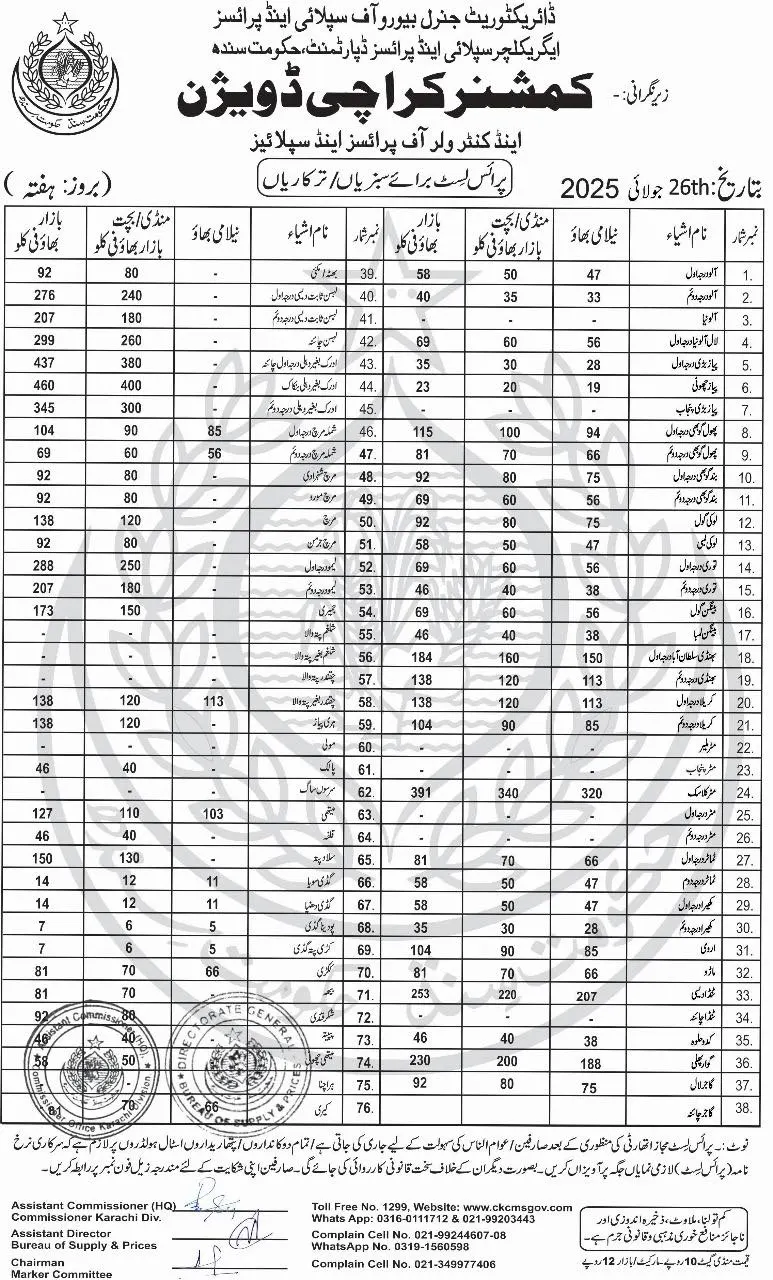 ڈائریکٹوریٹ جنرل بیورو آف سپلائی اینڈ پرائسز
ایگریکلچر سپلائی اینڈ پرائسز ڈپارٹمنٹ، حکومت سندھ
زیر نگرانی:- کمشنر کراچی ڈویژن
اینڈ کنٹرولر آف پرائسز اینڈ سپلائیز
پرائس لسٹ برائے سبزیاں / ترکاریاں
بتاریخ: 26th جولائی 2025 (بروز: ہفتہ)
نمبر شمار نام اشیاء نیلامی بھاؤ منڈی/بچت بازار بھاؤ فی کلو بازار بھاؤ فی کلو نمبر شمار نام اشیاء نیلامی بھاؤ منڈی/بچت بازار بھاؤ فی کلو بازار بھاؤ فی کلو
1. آلو درجہ اول 47 50 58 39. بھٹہ / مکئی - 80 92
2. آلو درجہ دوئم 33 35 40 40. لہسن ثابت دیسی درجہ اول - 240 276
3. آلو نیا - - - 41. لہسن ثابت دیسی درجہ دوئم - 180 207
4. لال آلو نیا درجہ اول 56 60 69 42. لہسن چائنہ - 260 299
5. پیاز بڑی درجہ اول 28 30 35 43. ادرک بغیر دھلی درجہ اول چائنہ - 380 437
6. پیاز چھوٹی 19 20 23 44. ادرک بغیر دھلی بنکاک - 400 460
7. پیاز بڑی پنجاب 45. ادرک بغیر دھلی درجہ دوئم - 300 345
8. پھول گوبھی درجہ اول 94 100 115 46. شملہ مرچ درجہ اول 85 90 104
9. پھول گوبھی درجہ دوئم 66 70 81 47. شملہ مرچ درجہ دوئم 56 60 69
10. بند گوبھی درجہ اول 75 80 92 48. مرچ شہزادی - 80 92
11. بند گوبھی درجہ دوئم 56 60 69 49. مرچ مورو - 80 92
12. لوکی گول 75 80 92 50. مرچ - 120 138
13. لوکی لمبی 47 50 58 51. مرچ جرمن - 80 92
14. توری درجہ اول 56 60 69 52. لیمو درجہ اول - 250 288
15. توری درجہ دوئم 38 40 46 53. لیمو درجہ دوئم - 180 207
16. بینگن گول 56 60 69 54. - 150 173
17. بینگن لمبا 38 40 46 55. شلغم پتہ والا - - -
18. بھنڈی سلطان آباد درجہ اول 150 160 184 56. شلغم بغیر پتہ والا - - -
19. بھنڈی درجہ دوئم 113 120 138 57. چقندر پتہ والا - - -
20. کریلا درجہ اول 113 120 138 58. چقندر بغیر پتہ والا 113 120 138
21. کریلا درجہ دوئم 85 90 104 59. ہری پیاز - 120 138
22. مٹر ملیر - - - 60. مولی - - -
23. مٹر پنجاب - - - 61. پالک - 40 46
24. مٹر کلاسک 320 340 391 62. سرسوں ساگ - - -
25. مٹر درجہ اول - - - 63. میتھی 103 110 127
26. مٹر درجہ دوئم - - - 64. قلفہ - 40 46
27. ٹماٹر درجہ اول 66 70 81 65. سلاد پتہ - 130 150
28. ٹماٹر درجہ دوم 47 50 58 66. گڈی سویا 11 12 14
29. کھیرا درجہ اول 47 50 58 67. گڈی دھنیا 11 12 14
30. کھیرا درجہ دوئم 28 30 35 68. پودینا گڈی 5 6 7
31. اروی 85 90 104 69. کڑی پتہ گڈی 5 6 7
32. 66 70 81 70. ککڑی 66 70 81
33. ٹنڈا دیسی 207 220 253 71. - 70 81
34. ٹنڈا چائنہ - - - 72. شکر قندی 80 92
35. کدو حلوہ 38 40 46 73. پپیتہ 40 46
36. گوار پھلی 188 200 230 74. میتھی پھول 50 58
37. گاجر لال 75 80 92 75. ہرا چنا - -
38. گاجر چائنہ 76. کیری 66 70 81
Assistant Commissioner (HQ)
Commissioner Office Karachi Division
DIRECTORATE GENERAL
BUREAU OF SUPPLY & PRICES
نوٹ:۔ پرائس لسٹ مجاز اتھارٹی کی منظوری کے بعد صارفین / عوام الناس کی سہولت کے لیے جاری کی جاتی ہے / تمام دوکانداروں / پتھاریداروں / اسٹال ہولڈروں پر لازم ہے کہ سرکاری نرخ
نامہ (پرائس لسٹ) لازمی نمایاں جگہ پر آویزاں کریں۔ بصورت دیگر ان کے خلاف سخت قانونی کارروائی کی جائے گی۔ صارفین اپنی شکایت کے لئے مندرجہ زیل فون نمبر پر رابطہ کریں۔
Assistant Commissioner (HQ)
Commissioner Karachi Div.
Assistant Director
Bureau of Supply & Prices
Chairman
Marker Committee
Toll Free No. 1299, Website: www.ckcmsgov.com
Whats App: 0316-0111712 & 021-99203443
Complain Cell No. 021-99244607-08
WhatsApp No. 0319-1560598
Complain Cell No. 021-349977406
کم تولنا، ملاوٹ، ذخیرہ اندوزی اور
ناجائز منافع خوری مذہبی و قانونی جرم ہے۔
قیمت منڈی گیٹ 10 روپے - مارکیٹ / بازار 12 روپے